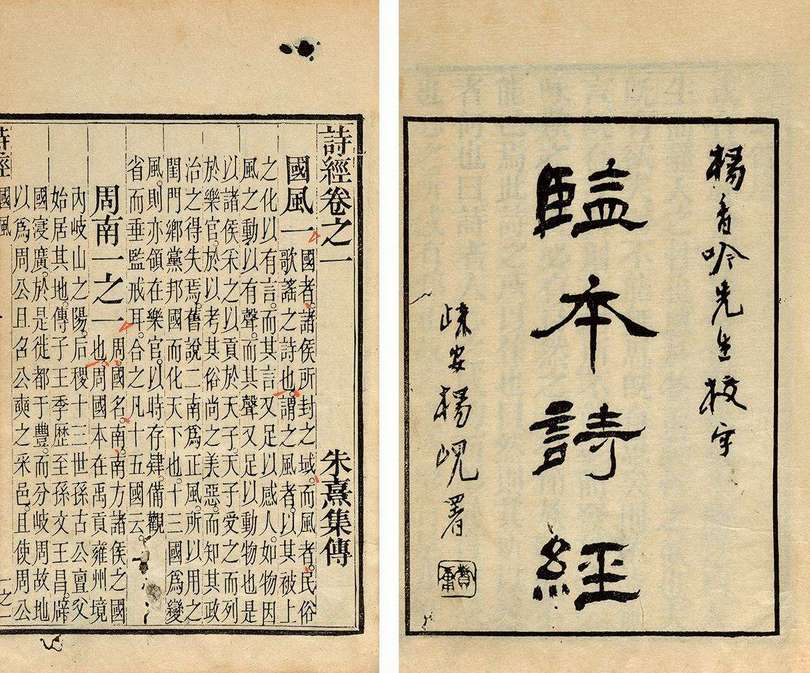 楊香吟先生校字
監本詩經
歸安楊峴署
詩經卷之一 朱熹集傳
國風一 國者諸侯所封之域。而風者民俗
歌謠之詩也。謂之風者。以其被上
之化以有言。而其言又足以感人。如物因
風之動以有聲。而其聲又足以動物也。是
以諸侯采之以貢於天子。天子受之而列
於樂官。於以考其俗尚之美惡。而知其政
治之得失焉。舊說二南爲正風。所以用之
閨門鄉黨邦國而化天下也。十三國爲變
風。則亦領在樂官。以時存肄備觀
省而垂監戒耳。合之凡十五國云。
周南一之一 周國名。南南方諸侯之國
也。周國本在禹貢雍州境
內岐山之陽。后稷十三世孫古公亶父
始居其地。傳子王季歷至孫文王昌。辟
國寖廣。於是徙都于豐。而分岐周故地
以爲周公旦召公奭之采邑。且使周公
詩經 國風 一之一